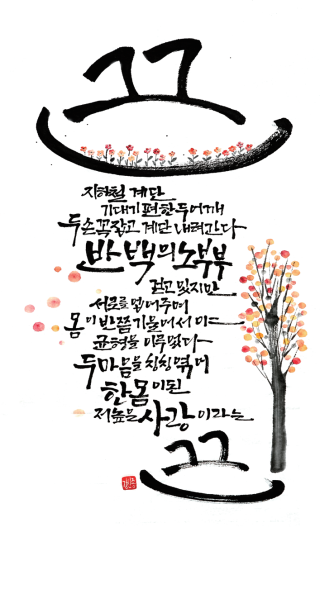 끈
지하철 계단
기대기 편한 두 어깨
두 손 꼭 잡고 계단 내려간다
반백의 노부부
걷고 있지만
서로를 업어주며
몸이 반쯤 기울어서
균형을 이루었다
두 마음을 칭칭 엮어
한몸이 된
저 높은 사랑이라는
끈